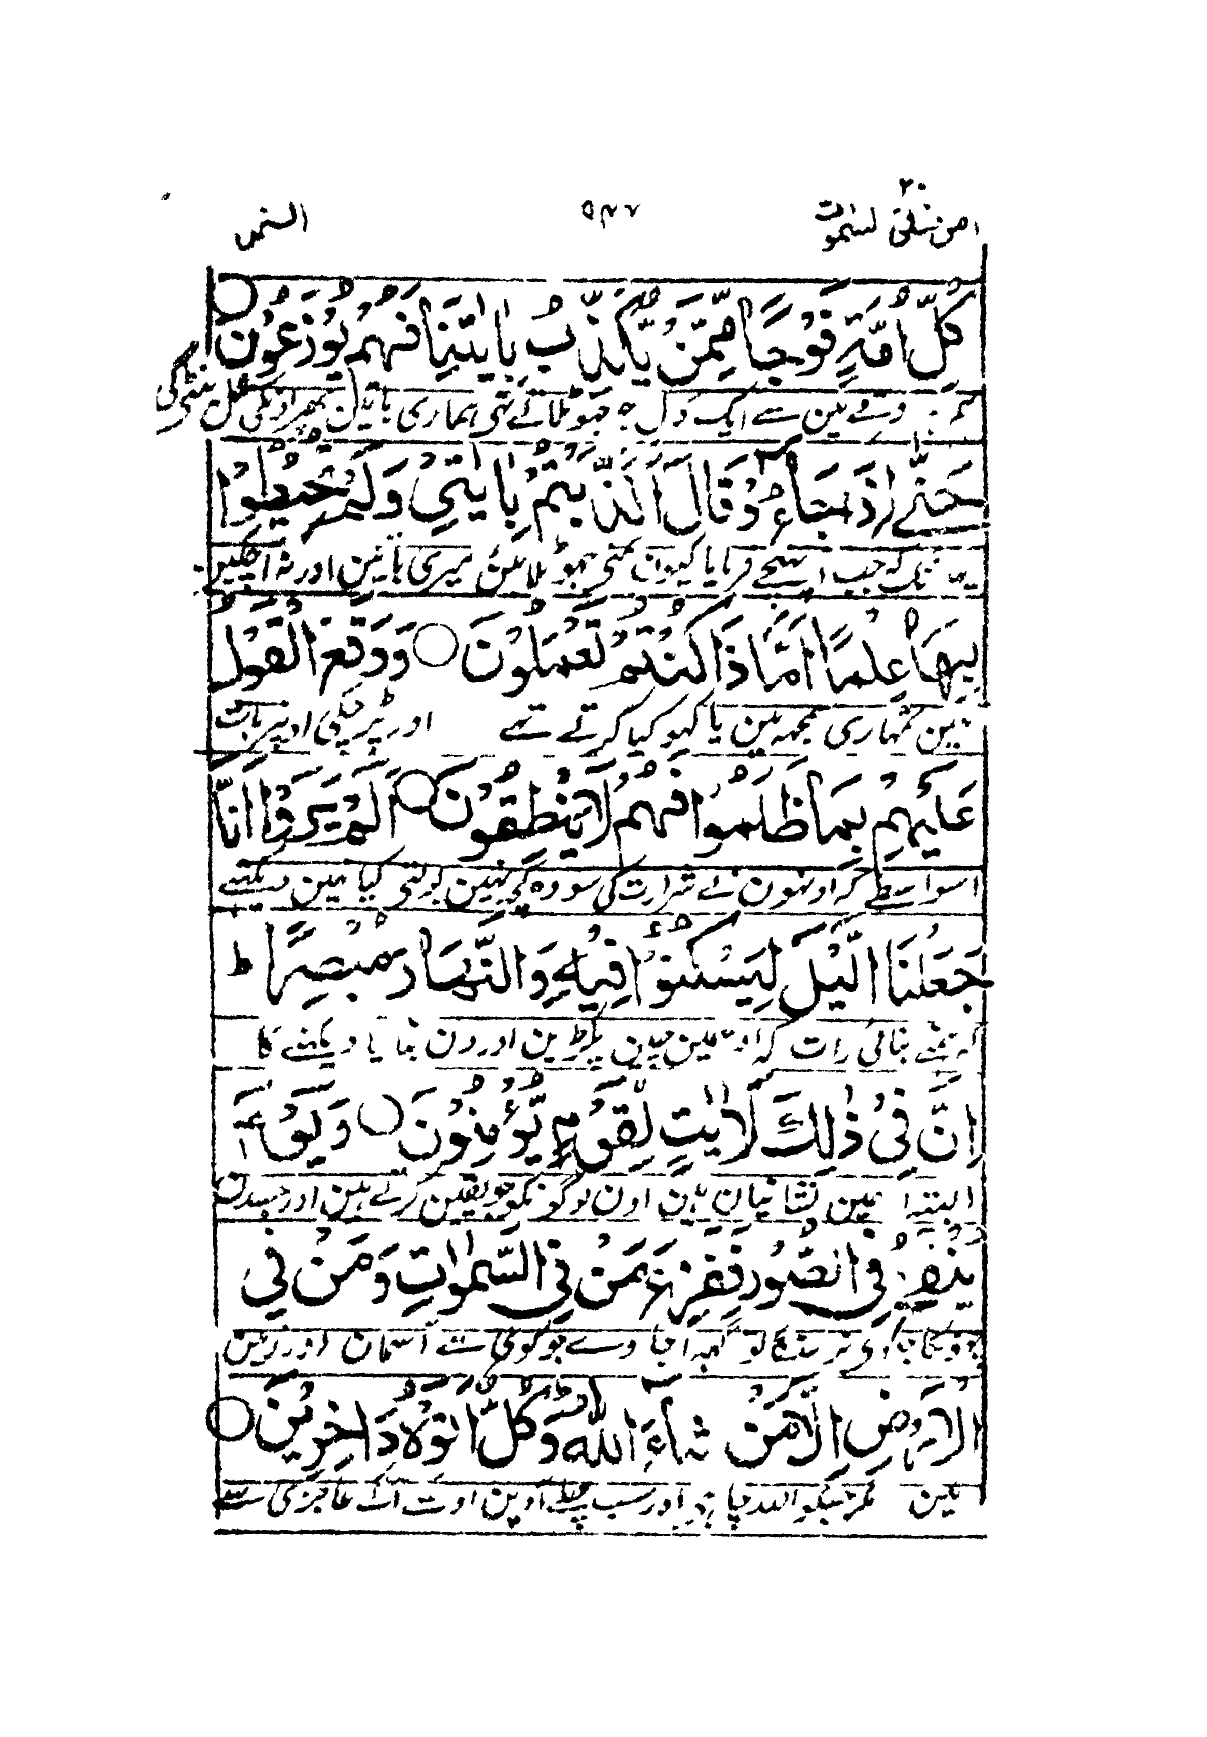 ۲۰
امن خلق السموات ۵۴۷ النمل
كُلِّ اُمَّةٍ فَوْجًا مِّمَّنْ يُّكَذِّبُ بِاٰيٰتِنَا فَهُمْ يُوْزَعُوْنَ ○
فرقے مین سے ایک دل جو جھوٹلاتے تھی ہماری باتین پھر اونکی مثل بنٹی گی
حَتّٰى اِذَا جَآءُوْ قَالَ اَكَذَّبْتُمْ بِاٰيٰتِيْ وَلَمْ تُحِيْطُوْا
تک کہ جب آ پہنچے فرمایا کیون تمنی جھوٹلائین میری باتین اور نہ آچکین
بِهَا عِلْمًا اَمَّا ذَا كُنْتُمْ تَعْمَلُوْنَ ○ وَوَقَعَ الْقَوْلُ
تمہاری سمجھ مین یا کہو کیا کرتے تھے اور پڑ چکی اونپر بات
عَلَيْهِمْ بِمَا ظَلَمُوْا فَهُمْ لَا يَنْطِقُوْنَ ○ اَلَمْ يَرَوْا اَنَّا
اسواسطے کہ اونہون نے شرارت کی سو وہ کچھ نہین بولتی کیا نہین دیکھتے
جَعَلْنَا الَّيْلَ لِيَسْكُنُوْا فِيْهِ وَالنَّهَارَ مُبْصِرًا ط
کہ ہمنے بنائی رات کہ اوسمین چین پکڑین اور دن بنایا دیکھنے کا
اِنَّ فِيْ ذٰلِكَ لَاٰيٰتٍ لِّقَوْمٍ يُّؤْمِنُوْنَ ○ وَيَوْمَ
البتہ اسمین نشانیان ہین اون لوگونکو جو یقین کرتے ہین اور جسدن
يُنْفَخُ فِي الصُّوْرِ فَفَزِعَ مَنْ فِي السَّمٰوٰتِ وَمَنْ فِي
پھونکا جاوی نرسنگا تو گھبرا جاوے جو کوئی ہے آسمان اور زمین
الْاَرْضِ اِلَّا مَنْ شَآءَ اللّٰهُ وَكُلٌّ اَتَوْهُ دَاخِرِيْنَ ○
مین مگر جسکو اللہ چاہے اور سب چلے آوین اوسکے آگے عاجزی سے